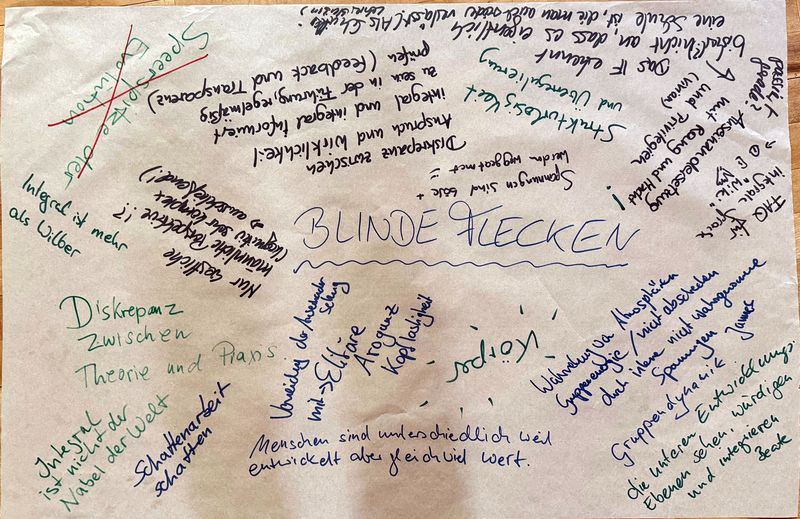 BLINDE FLECKEN
Speerspitze der
Evolution
Integral ist mehr
als Wilber
Diskrepanz
zwischen
Theorie und Praxis
Integral
ist nicht der
Nabel der Welt
Schattenarbeit
schatten
Nur westliche
männliche Perspektive !?
(kognitiv sehr komplex
→ ausschließend!)
Diskrepanz zwischen
Anspruch und Wirklichkeit
integral und integral informiert
zu sein in der Führung, regelmäßig
prüfen (Feedback und Transparenz)
Das IF erkennt
nicht an, dass es eigentlich
eine Schule ist, die man auch wieder verlässt (Als Schüler
Strukturlosigkeit
und Überregulierung
Spannungen sind böse +
werden weggeatmet
passiert
gerade?
Auseinandersetzung
mit Rang und Macht
und Privilegien
FAQ für
Integral
"Wiki"
Vermeidung der
mit → Elitäre
Arroganz
Kopflastigkeit
Körper
Menschen sind unterschiedlich weit
entwickelt aber gleichviel wert.
Wahrnehmung von Atmosphären
Gruppenenergie / nicht abschneiden
durch innere nicht wahrgenommene
Spannungen
Gruppendynamik
die unteren Entwicklungs-
Ebenen sehen, würdigen
und integrieren
Beate